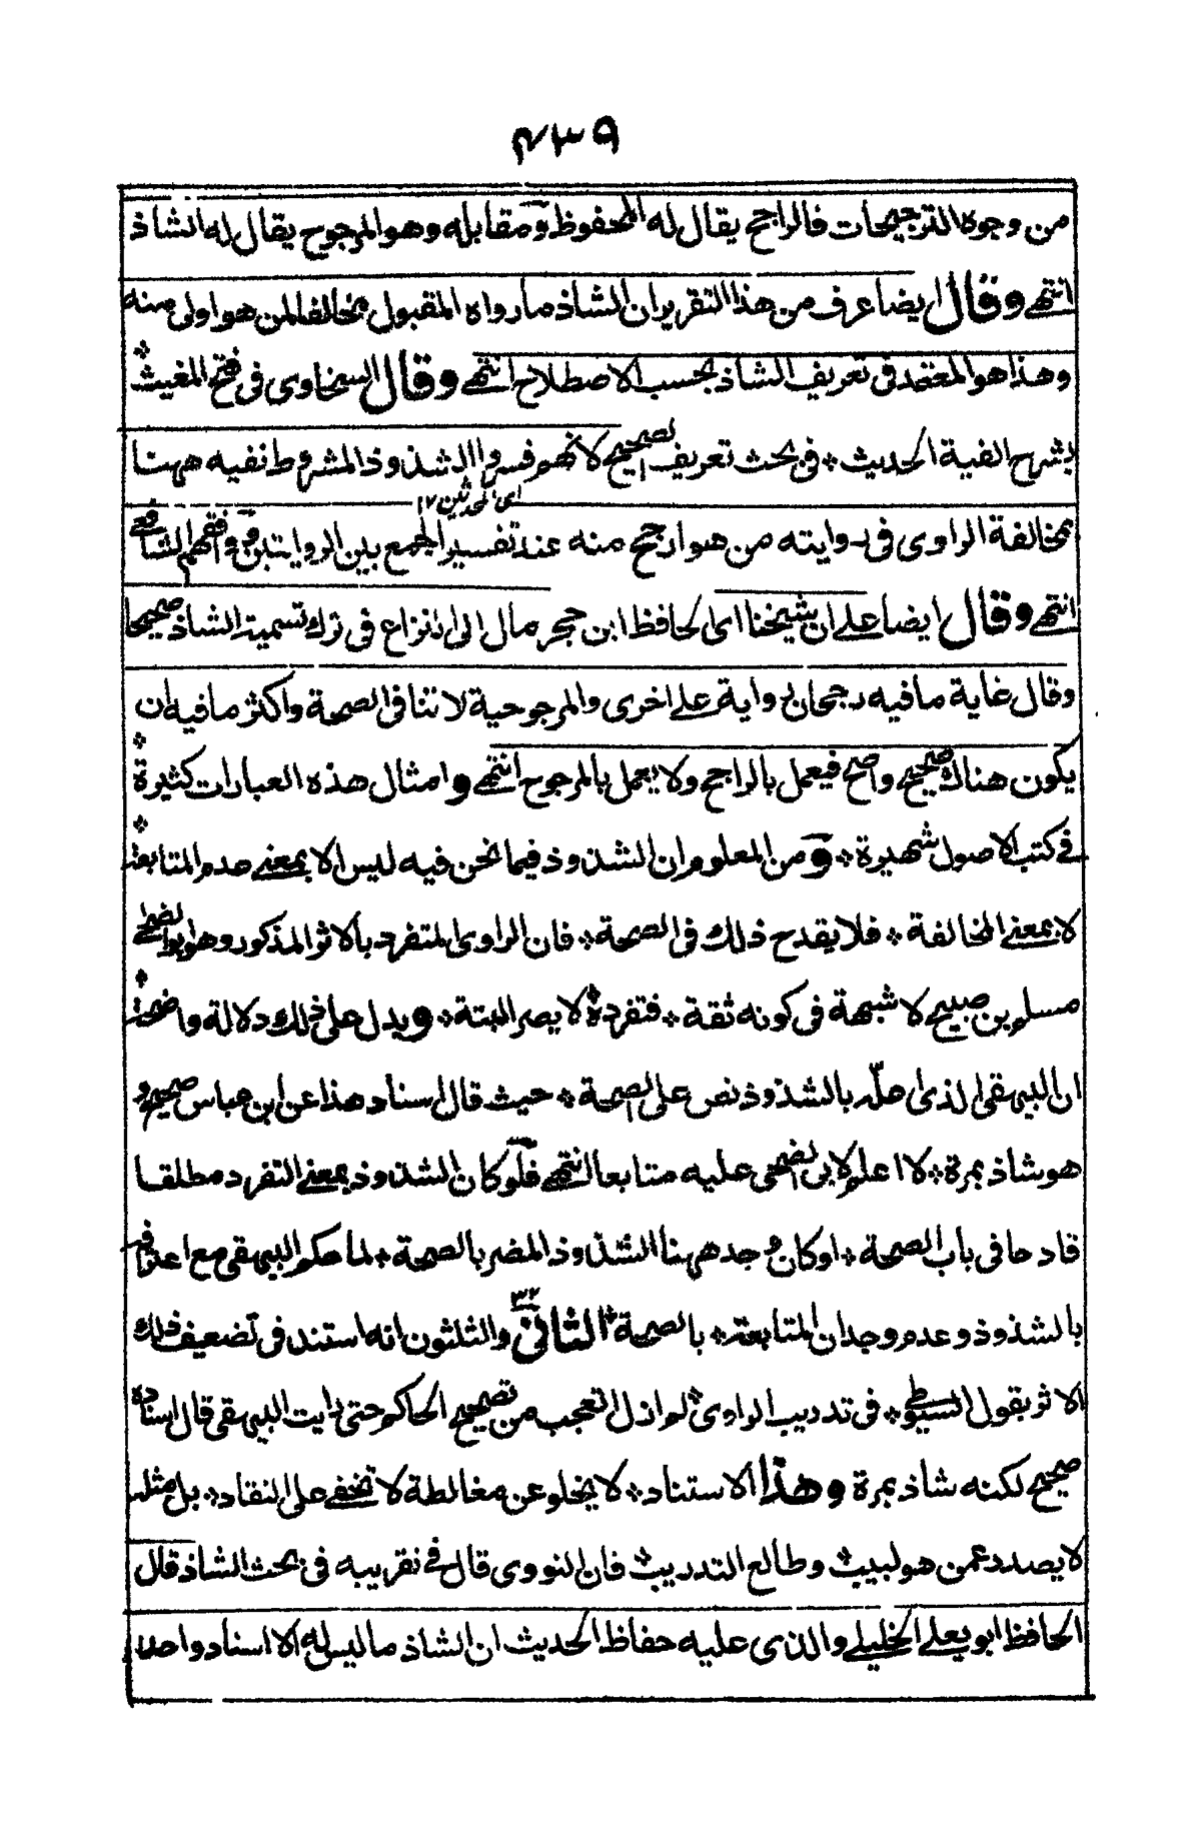 ٤٣٩
من وجوه الترجيحات فالراجح يقال له المحفوظ ومقابله وهو المرجوح يقال له الشاذ
انتهى وقال ايضا عرف من هذا التقرير ان الشاذ ما رواه المقبول مخالفا لمن هو اولى منه
وهذا هو المعتمد فى تعريف الشاذ بحسب الاصطلاح انتهى وقال السخاوى فى فتح المغيث
بشرح الفية الحديث * فى بحث تعريف الصحيح لانهم فسروا الشذوذ المشروط نفيه ههنا
اى المحدثين ١٢
بمخالفة الراوى فى روايته من هو ارجح منه عند تفسير الجمع بين الروايتين ووافقهم الشافعى
انتهى وقال ايضا على ان شيخنا اى الحافظ ابن حجر مال الى النزاع فى ترك تسمية الشاذ صحيحا
وقال غاية ما فيه رجحان رواية على اخرى والمرجوحية لا تنافى الصحة واكثر ما فيه ان
يكون هناك صحيح واصح فيعمل بالراجح ولا يعمل بالمرجوح انتهى وامثال هذه العبارات كثيرة *
فى كتب الاصول شهيرة * ومن المعلوم ان الشذوذ فيما نحن فيه ليس الا بمعنى عدم المتابعة *
لا بمعنى المخالفة * فلا يقدح ذلك فى الصحة * فان الراوى المتفرد بالاثر المذكور وهو ابو الضحى
مسلم بن صبيح لا شبهة فى كونه ثقة * فتفرده لا يضر البتة * ويدل على ذلك دلالة واضحة *
ان البيهقى الذى اعله بالشذوذ نص على الصحة * حيث قال اسناد هذا عن ابن عباس صحيح و
هو شاذ بمرة * لا اعلم لابى الضحى عليه متابعا انتهى فلو كان الشذوذ بمعنى التفرد مطلقا
قادحا فى باب الصحة * او كان وجد ههنا الشذوذ المضر بالصحة * لما حكم البيهقى مع اعترافه
بالشذوذ وعدم وجدان المتابعة * بالصحة * الثانى والثلثون انه استند فى تضعيف ذلك
الاثر بقول السيوطى * فى تدريب الراوى * لم ازل اتعجب من تصحيح الحاكم حتى رايت البيهقى قال اسناده
صحيح لكنه شاذ بمرة وهذا الاستناد * لا يخلو عن مغالطة لا تخفى على النقاد * بل مثله
لا يصدر عمن هو لبيب * وطالع التدريب * فان النووى قال فى تقريبه فى بحث الشاذ قال
الحافظ ابو يعلى الخليلى والذى عليه حفاظ الحديث ان الشاذ ما ليس له الا اسناد واحد